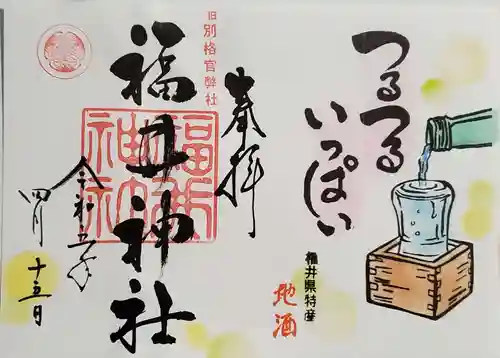 つるつる
いっぱい
福井県特産
地酒
旧別格官弊社
奉拝
福井神社
福井神社
令和五年
四月十五日